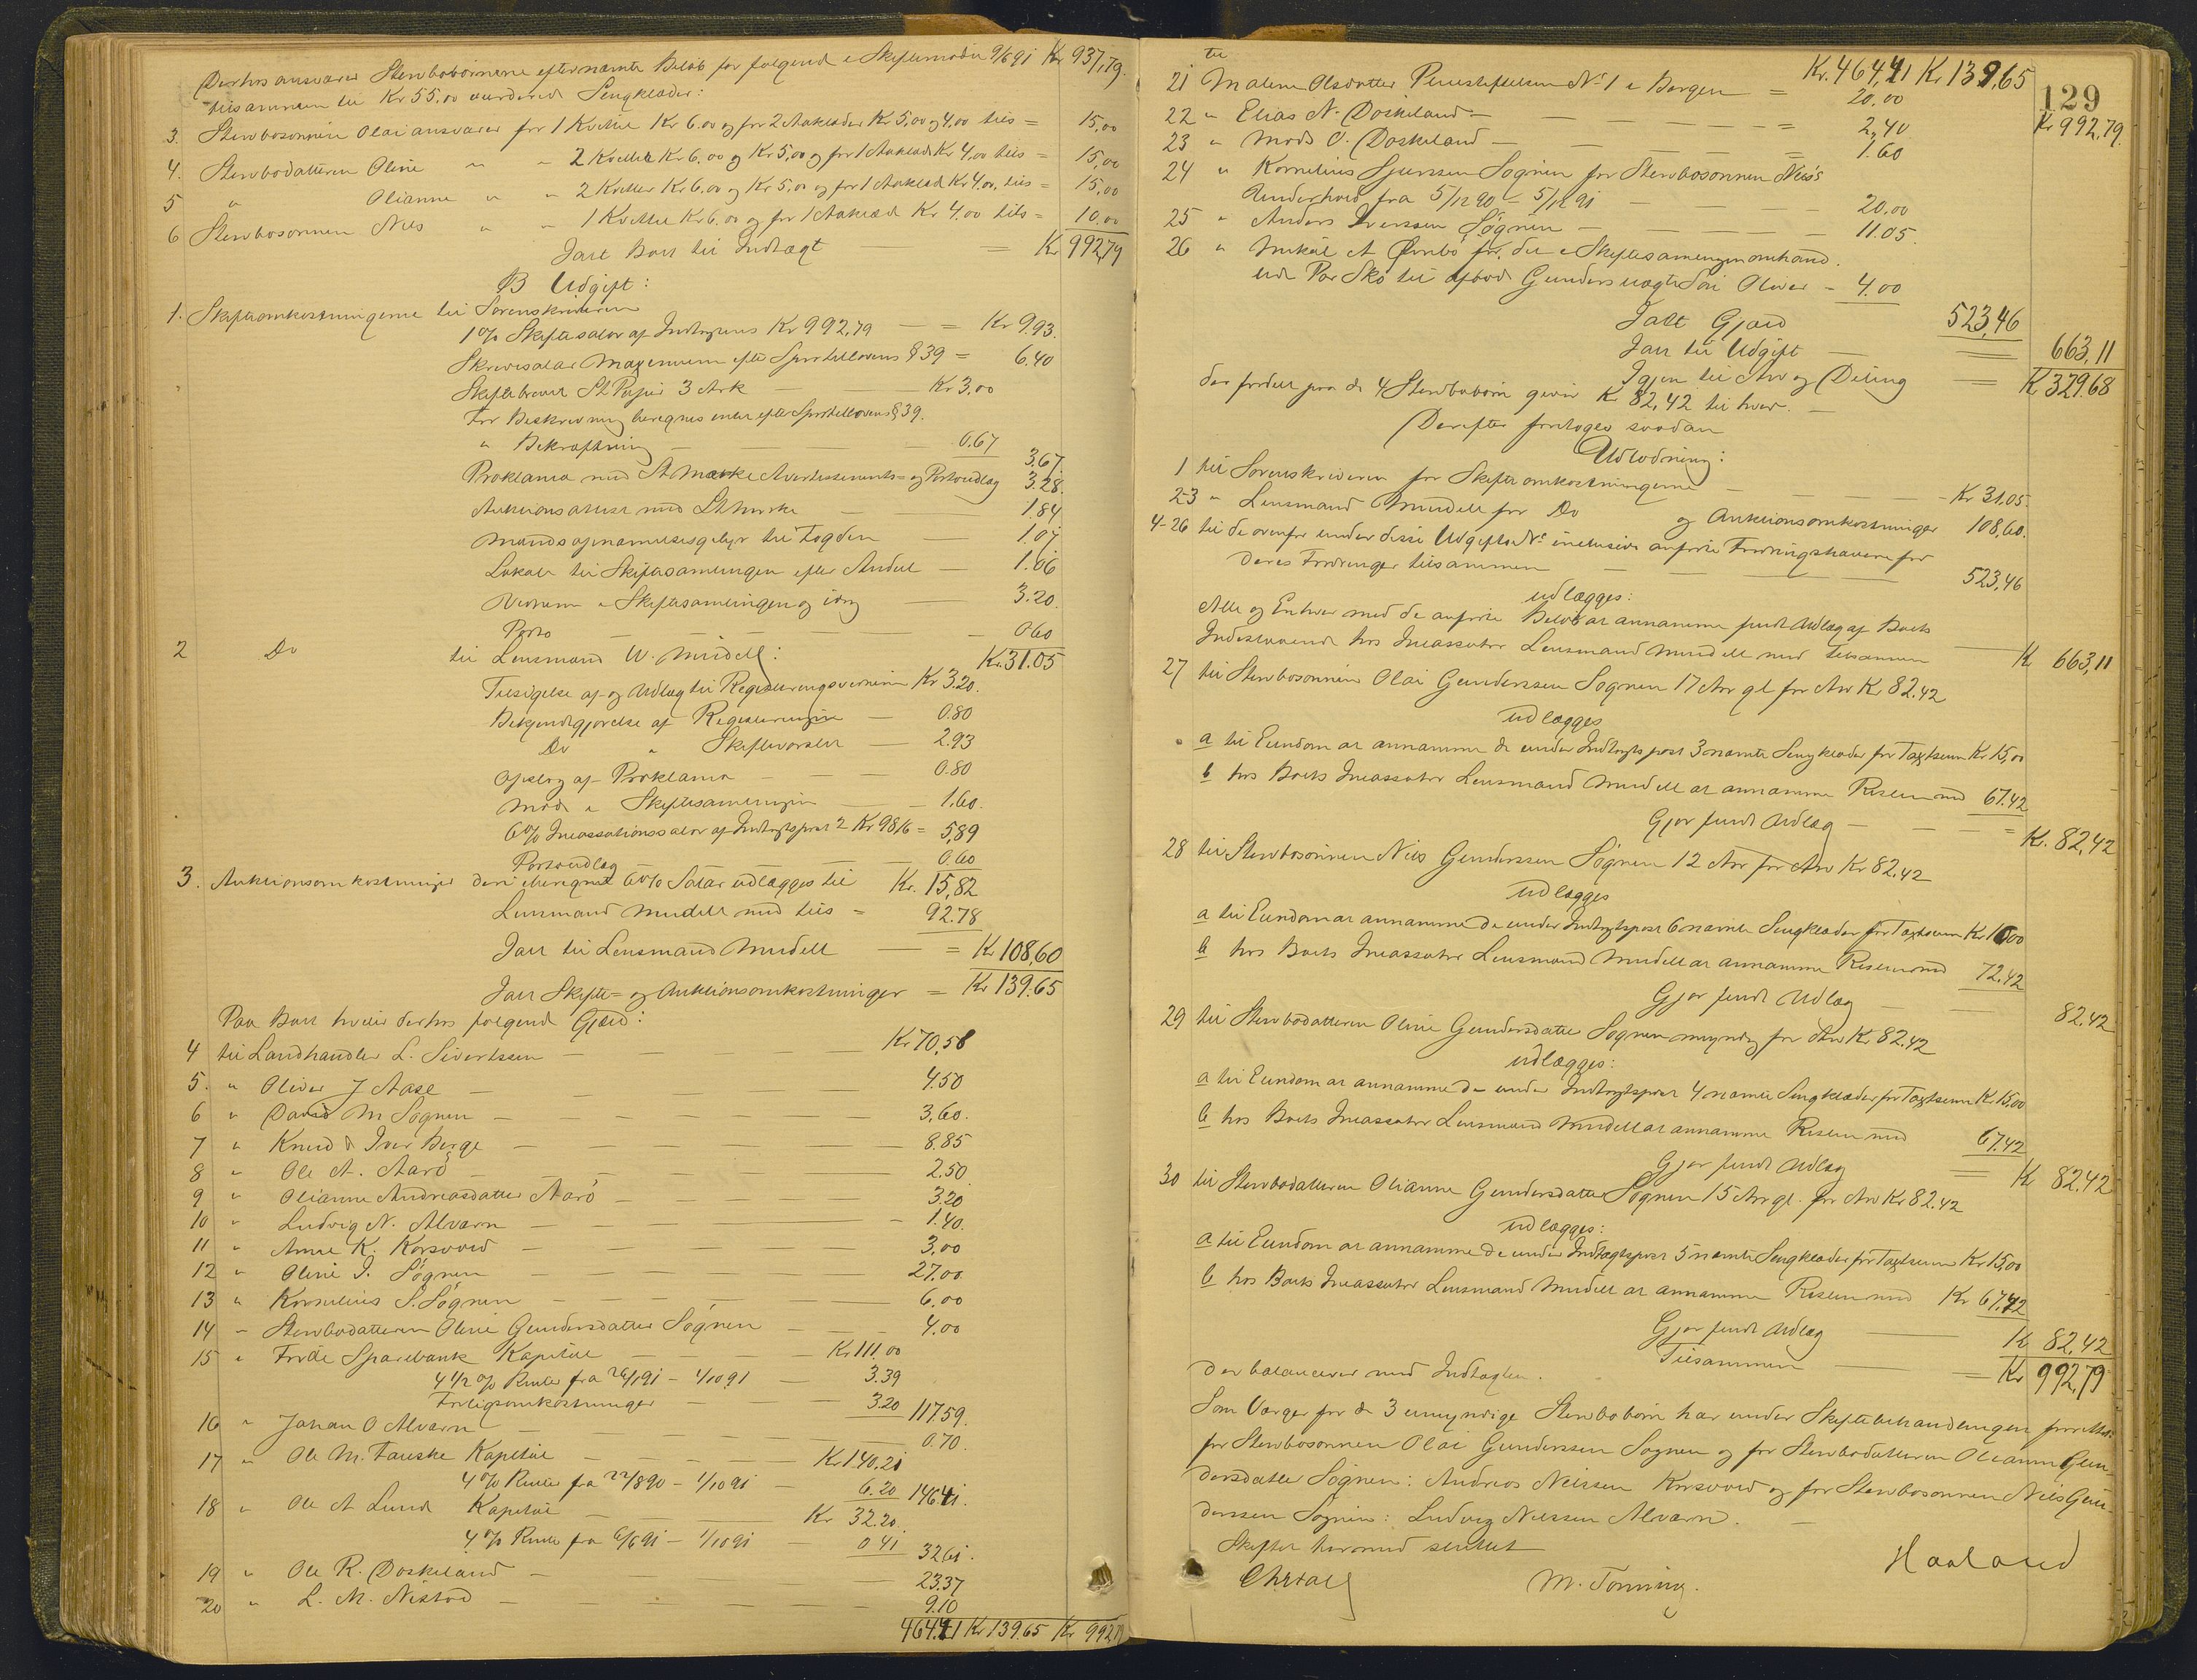 Derhos ansvarer Stervbobørnene efternævnte Beløb for følgende i Skiftemøde 9/6 91 Kr 937,79.
tilsammen til Kr 55,00 vurderede Sengklæder:
3. Stervbosønnen Olai ansvarer for 1 Kvittel Kr 6.00 og for 2 Aaklæder Kr 5,00 og 4,00 tils = 15,00
4. Stervbodatteren Oline " " 2 Kvitler Kr 6,00 og Kr 5,00 og for 1 Aaklæde Kr 4,00 tils = 15,00
5 " Olianne " " 2 Kvitler Kr 6,00 og Kr 5,00 og for 1 Aaklæde Kr 4,00, tils = 15,00
6 Stervbosønnen Nils " " 1 Kvittel Kr 6.00 og for 1 Aaklæde Kr 4.00 tils = 10.00
Ialt Boets til Indtægt = Kr 992,79
B Udgift:
1. Skifteomkostningerne til Sorenskriveren
1% Skiftesalær af Indtægtens Kr 992,79 = Kr 9.93.
Skriversalær Maximum efter Sportellovens § 39 = 6.40
Skiftebrevet St Papir 3 Ark Kr 3,00
For Beskrivning beregnes intet efter Sportellovens § 39.
" Bekræftning 0.67 3.67
Proklama med St Mærke Avertissements- og Portoudlæg 3.28.
Auktionsattest med St Mærke 1.84
Mandsopnævnelsesgebyr til Fogden 1.07
Lokale til Skiftesamlingen efter Andel 1.06
Vidnerne i Skiftesamlingen og iøvr 3.20.
Porto 0.60
Kr. 31.05
2 Do til Lensmand W. Mindell:
Tilsigelse af og Udlæg til Registreringsvidnerne Kr 3.20.
Bekjendtgjørelse af Registreringen 0.80
Do " Skiftevarslet 2.93
Opslag af Proklama 0.80
Møde i Skiftesamlingen 1.60.
6% Incassationssalær af Indtægtspost 2 Kr 98,16 = 5,89
Portoudlæg 0.60
Kr. 15,82
3. Auktionsomkostninger deri iberegnet 6% Salær udlægges til
Lensmand Mindell med tils = 92.78
Ialt til Lensmand Mindell = Kr 108,60
Ialt Skifte- og Auktionsomkostninger = Kr 139.65
Paa Boet hviler derhos følgende Gjæld:
4 til Landhandler L. Sivertssen Kr 70,58
5. " Oliver J Aase 4.50
6 " David M Søgnen 3,60.
7 " Knud & Iver Berge 8.85
8 " Ole A. Aarø 2.50
9 " Olianne Andreasdatter Aarø 3.20
10 " Ludvig N. Alværn 1.40.
11 " Anne K. Korsvold 3,00
12 " Oline I. Søgnen 27.00
13 " Kornelius S. Søgnen 6.00
14 " Stervbodatteren Oline Gundersdatter Søgnen 4.00
15 " Førde Sparebank Kapital Kr 111.00
4 1/2 % Renter fra 26/1 91 - 1/10 91 3.39
Forligsomkostninger 3.20 117.59.
16 " Johan O Alværn 0.70.
17 " Ole M. Fauske Kapital Kr 140.21
4 % Renter fra 22/8 90 - 1/10 91 6.20 146.41.
18 " Ole A Lund Kapital Kr 32.20.
4 % Renter fra 6/6 91 - 1/10 91 0 41 32.61.
19 " Ole R. Doskeland 23.37
20 " L. M. Nistad 9.10
464.41 Kr 139.65 Kr 992,79
129
til Kr. 464,41 Kr 139,65 Kr 992,79.
21 Malene Olsdatter Pleiestiftelsen No 1 i Bergen = 20.00
22 " Elias N. Doskeland = 2,40
23 " Mads O. Doskeland = 1.60
24 " Kornelius Sjurssen Søgnen for Stervbosønnen Nils's
Underhold fra 5/12 90 - 5/12 91 20.00
25 " Anders Iverssen Søgnen 11.05.
26 " Mikal A Ørnbø for, det i Skiftesamlingen omhand.
lede Par Sko til afdøde Gunders uægte Søn Oliver - 4.00
Ialt Gjæld 523,46
Ialt til Udgift 663,11
Igjen til Arv og Deling Kr 329.68
der fordelt paa de 4 Stervbobørn giver Kr 82,42 til hver.
Derefter foretoges saadan
Udlodning:
1 til Sorenskriveren for Skifteomkostningerne Kr 31.05.
2-3 " Lensmand Mindell for Do og Auktionsomkostninger 108,60.
4-26 til de ovenfor under disse Udgifts No inclusive anførte Fordringshavere for
deres Fordringer tilsammen 523,46
udlægges:
Alle og Enhver med de anførte Beløb at annamme fuldt Udlæg af Boets
Indestaaende hos Incassator Lensmand Mindell med tilsammen Kr 663,11
27 til Stervbosønnen Olai Gunderssen Søgnen 17 Aar gl for Arv Kr 82.42
udlægges
a til Eiendom at annamme de under Indtægtspost 3 nævnte Sengklæder for Taxtsum Kr. 15,00
b hos Boets Incassator Lensmand Mindell at annamme Resten med 67.42
Gjør fuldt Udlæg = Kr. 82,42
28 til Stervbosønnen Nils Gunderssen Søgnen 12 Aar for Arv Kr 82.42
udlægges
a til Eiendom at annamme de under Indtægtspost 6 nævnte Sengklæder for Taxtsum Kr 10,00
b hos Boets Incassator Lensmand Mindell at annamme Resten med 72.42
Gjør fuldt Udlæg 82,42
29 til Stervbodatteren Oline Gundersdatter Søgnen myndig for Arv Kr. 82.42
udlægges:
a til Eiendom at annamme de under Indtægtspost 4 nævnte Sengklæder for Taxtsum Kr. 15,00
b hos Boets Incassator Lensmand Mindell at annamme Resten med 67.42
Gjør fuldt Udlæg Kr 82,42
30 til Stervbodatteren Olianne Gundersdatter Søgnen 15 Aar gl. for Arv Kr 82.42
udlægges:
a til Eiendom at annamme de under Indtægtspost 5 nævnte Sengklæder for Taxtsum Kr 15,00
b hos Boets Incassator Lensmand Mindell at annamme Resten med Kr 67,42
Gjør fuldt Udlæg Kr 82,42
Tilsammen = Kr 992,79
der balancerer med Indtægten.
Som Værger for de 3 umyndige Stervbobørn har under Skiftebehandlingen
for Stervbosønnen Olai Gunderssen Søgnen og for Stervbodatteren Olianne Gun-
dersdatter Søgnen: Andreas Nilssen Korsvold og for Stervbosønnen Nils Gun-
derssen Søgnen: Ludvig Nilssen Alværn.
Skiftet hermed sluttet
Haaland
M. Tonning.